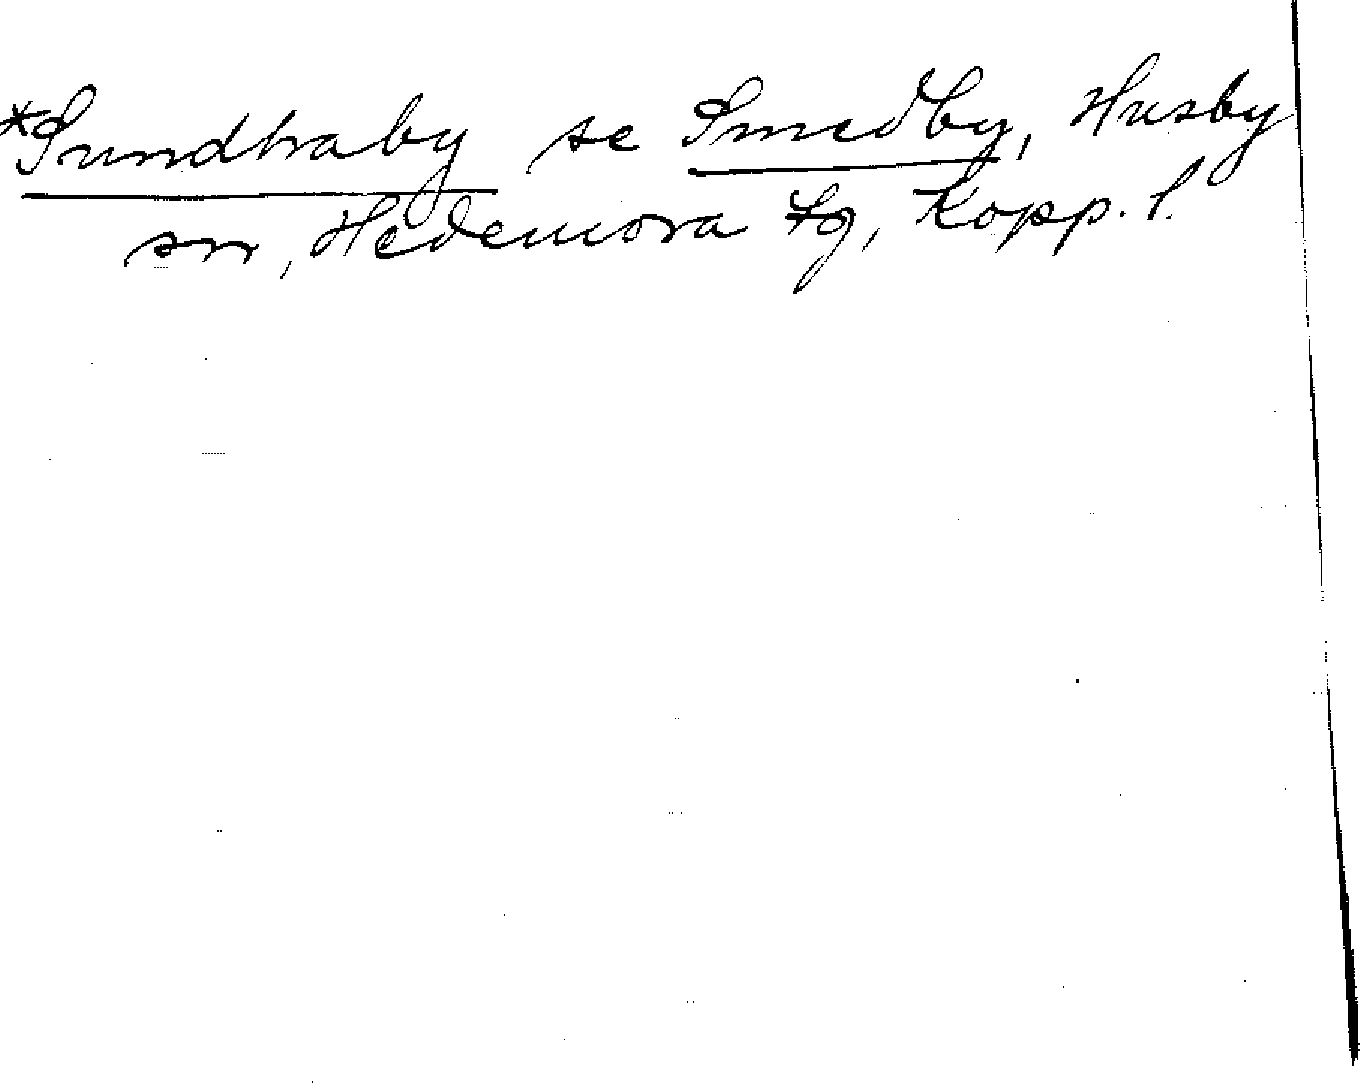 *Sundhraby se Smedby, Husby
sn, Hedemora tg, Kopp. l.